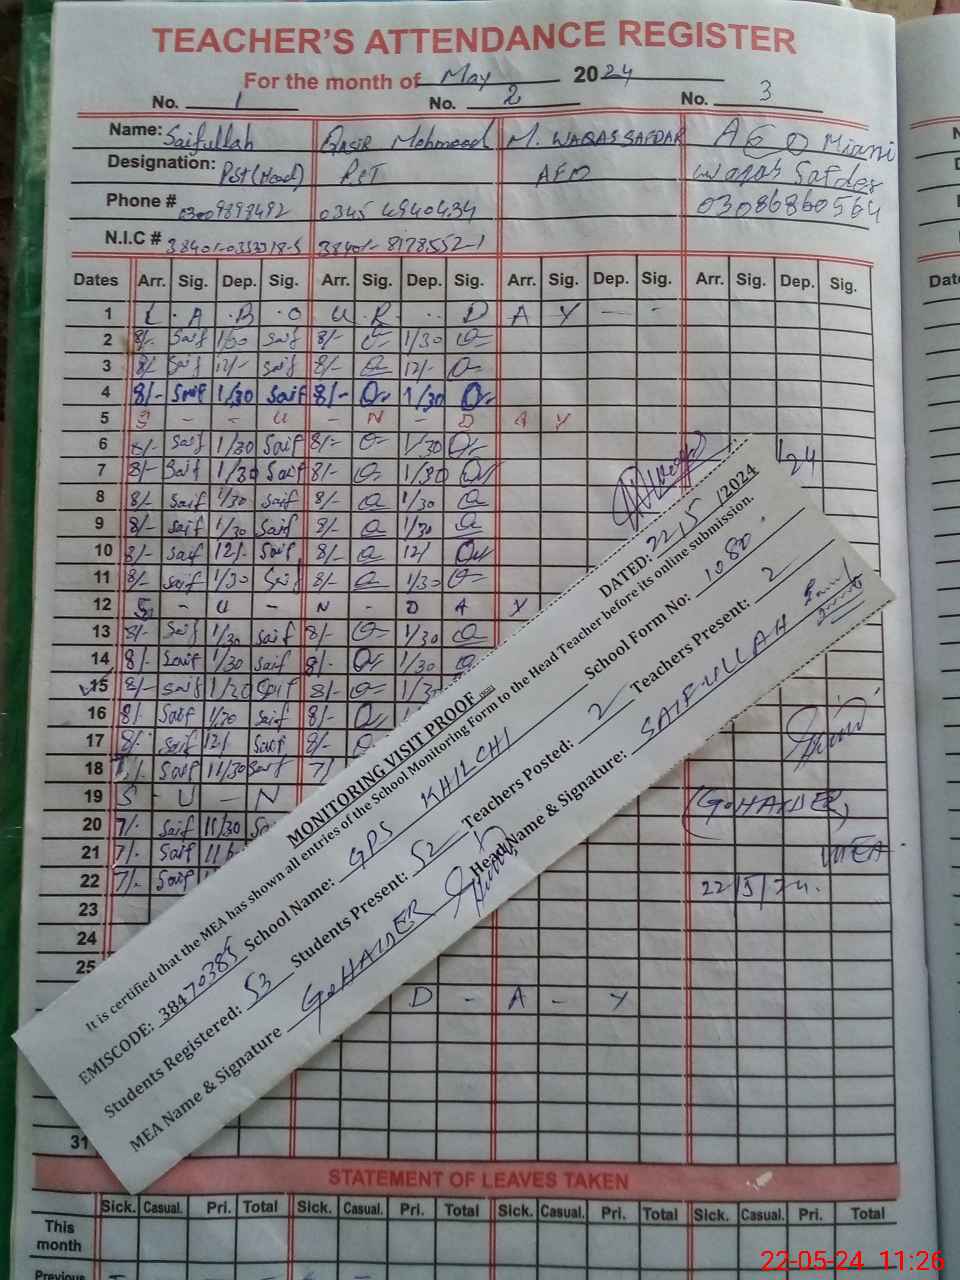 TEACHER'S ATTENDANCE REGISTER
For the month of May 2024
No. 1 No. 2 No. 3
Name: Saifullah Qasir Mehmood M. WAQAS SAFDAR AEO Miani
Designation: PST (Head) PST AEO Waqas Safdar
Phone # 03009898492 0345 4940434 03086860564
N.I.C #
Dates Arr. Sig. Dep. Sig. Arr. Sig. Dep. Sig. Arr. Sig. Dep. Sig. Arr. Sig. Dep. Sig.
1 L A B O U R D A Y
2 8/- Saif 1/30 Saif 8/- 1/30
3 8/- Saif 12/- Saif 8/- 12/-
4 8/- Saif 1/30 Saif 8/- 1/30
5 S - - U - N - D A Y
6 8/- Saif 1/30 Saif 8/- 1/30
7 8/- Saif 1/30 Saif 8/- 1/30
8 8/- Saif 1/30 Saif 8/- 1/30
9 8/- Saif 1/30 Saif 8/- 1/30
10 8/- Saif 12/- Saif 8/- 12/
11 8/- Saif 1/30 Saif 8/- 1/30
12 S - U - N - D A Y
13 8/- Saif 1/30 Saif 8/- 1/30
14 8/- Saif 1/30 Saif 8/- 1/30
15 8/- Saif Saif 8/-
16 8/- Saif 1/30 Saif 8/-
17 8/- Saif 12/- Saif 8/-
18 Saif 11/30 Saif 7/
19 S - U - N
20 7/- Saif 11/30
21 7/- Saif
22 7/- Saif
23
24
25
D - A - Y
31
(G. HAIDER)
MEA
22/5/24.
MONITORING VISIT PROOF
DATED: 22/5/2024
It is certified that the MEA has shown all entries of the School Monitoring Form to the Head Teacher before its online submission.
EMISCODE: 38470385 School Name: GPS KHILCHI School Form No: 1080
Students Registered: 53 Students Present: 52 Teachers Posted: 2 Teachers Present: 2
MEA Name & Signature G. HAIDER Head Name & Signature: SAIFULLAH
STATEMENT OF LEAVES TAKEN
Sick. Casual. Pri. Total Sick. Casual. Pri. Total Sick. Casual. Pri. Total Sick. Casual. Pri. Total
This month
Previous
22-05-24 11:26